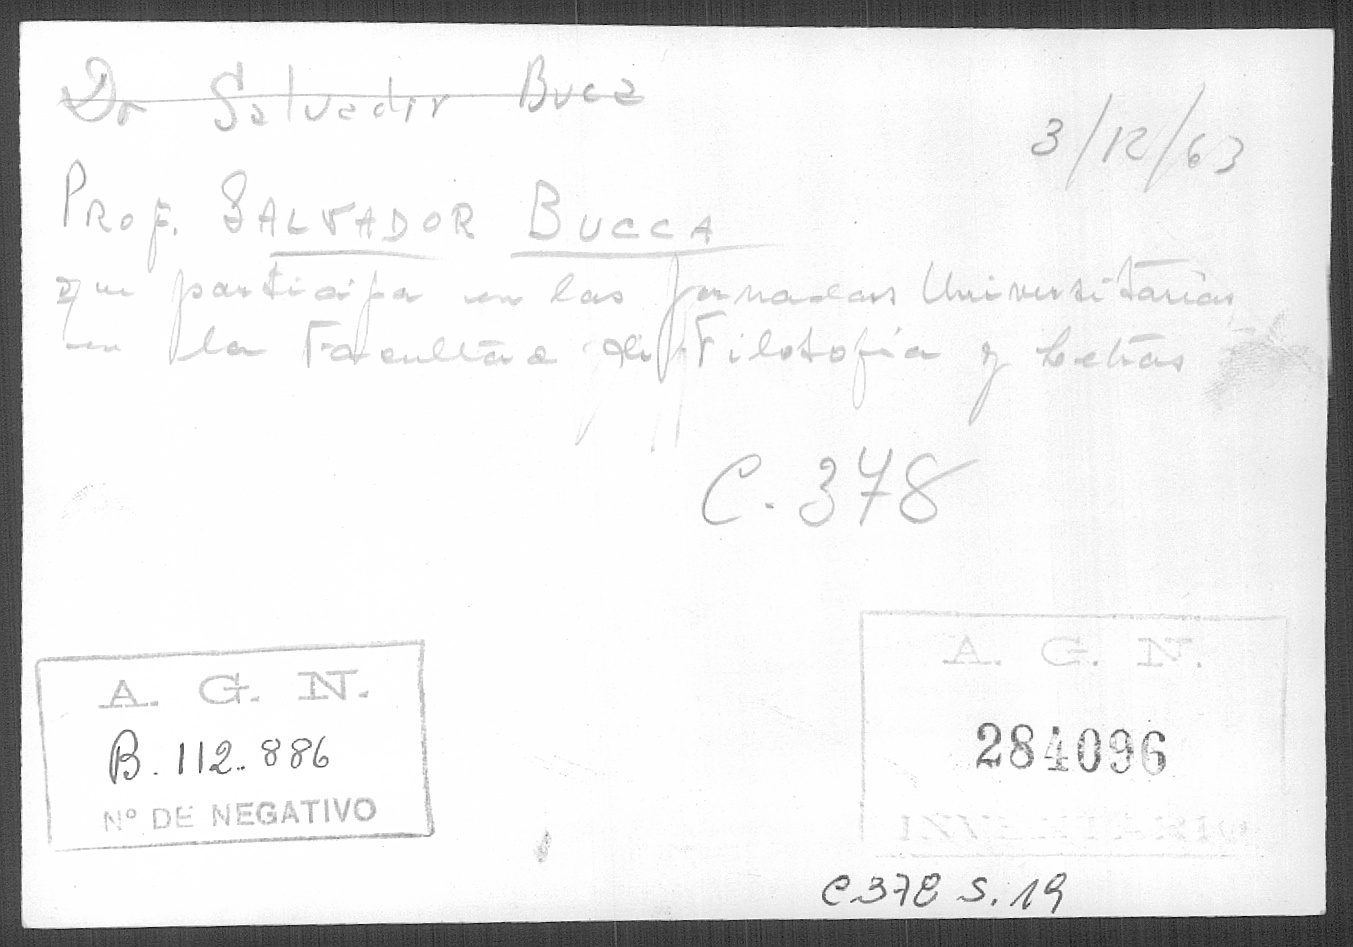 Dr Salvador Buca
3/12/63
PROF. SALVADOR BUCCA
que participa en las Jornadas Universitarias
en la Facultad de Filosofía y Letras
C. 378
A. G. N.
B. 112.886
Nº DE NEGATIVO
A. G. N.
284096
INVENTARIO
C378 S. 19